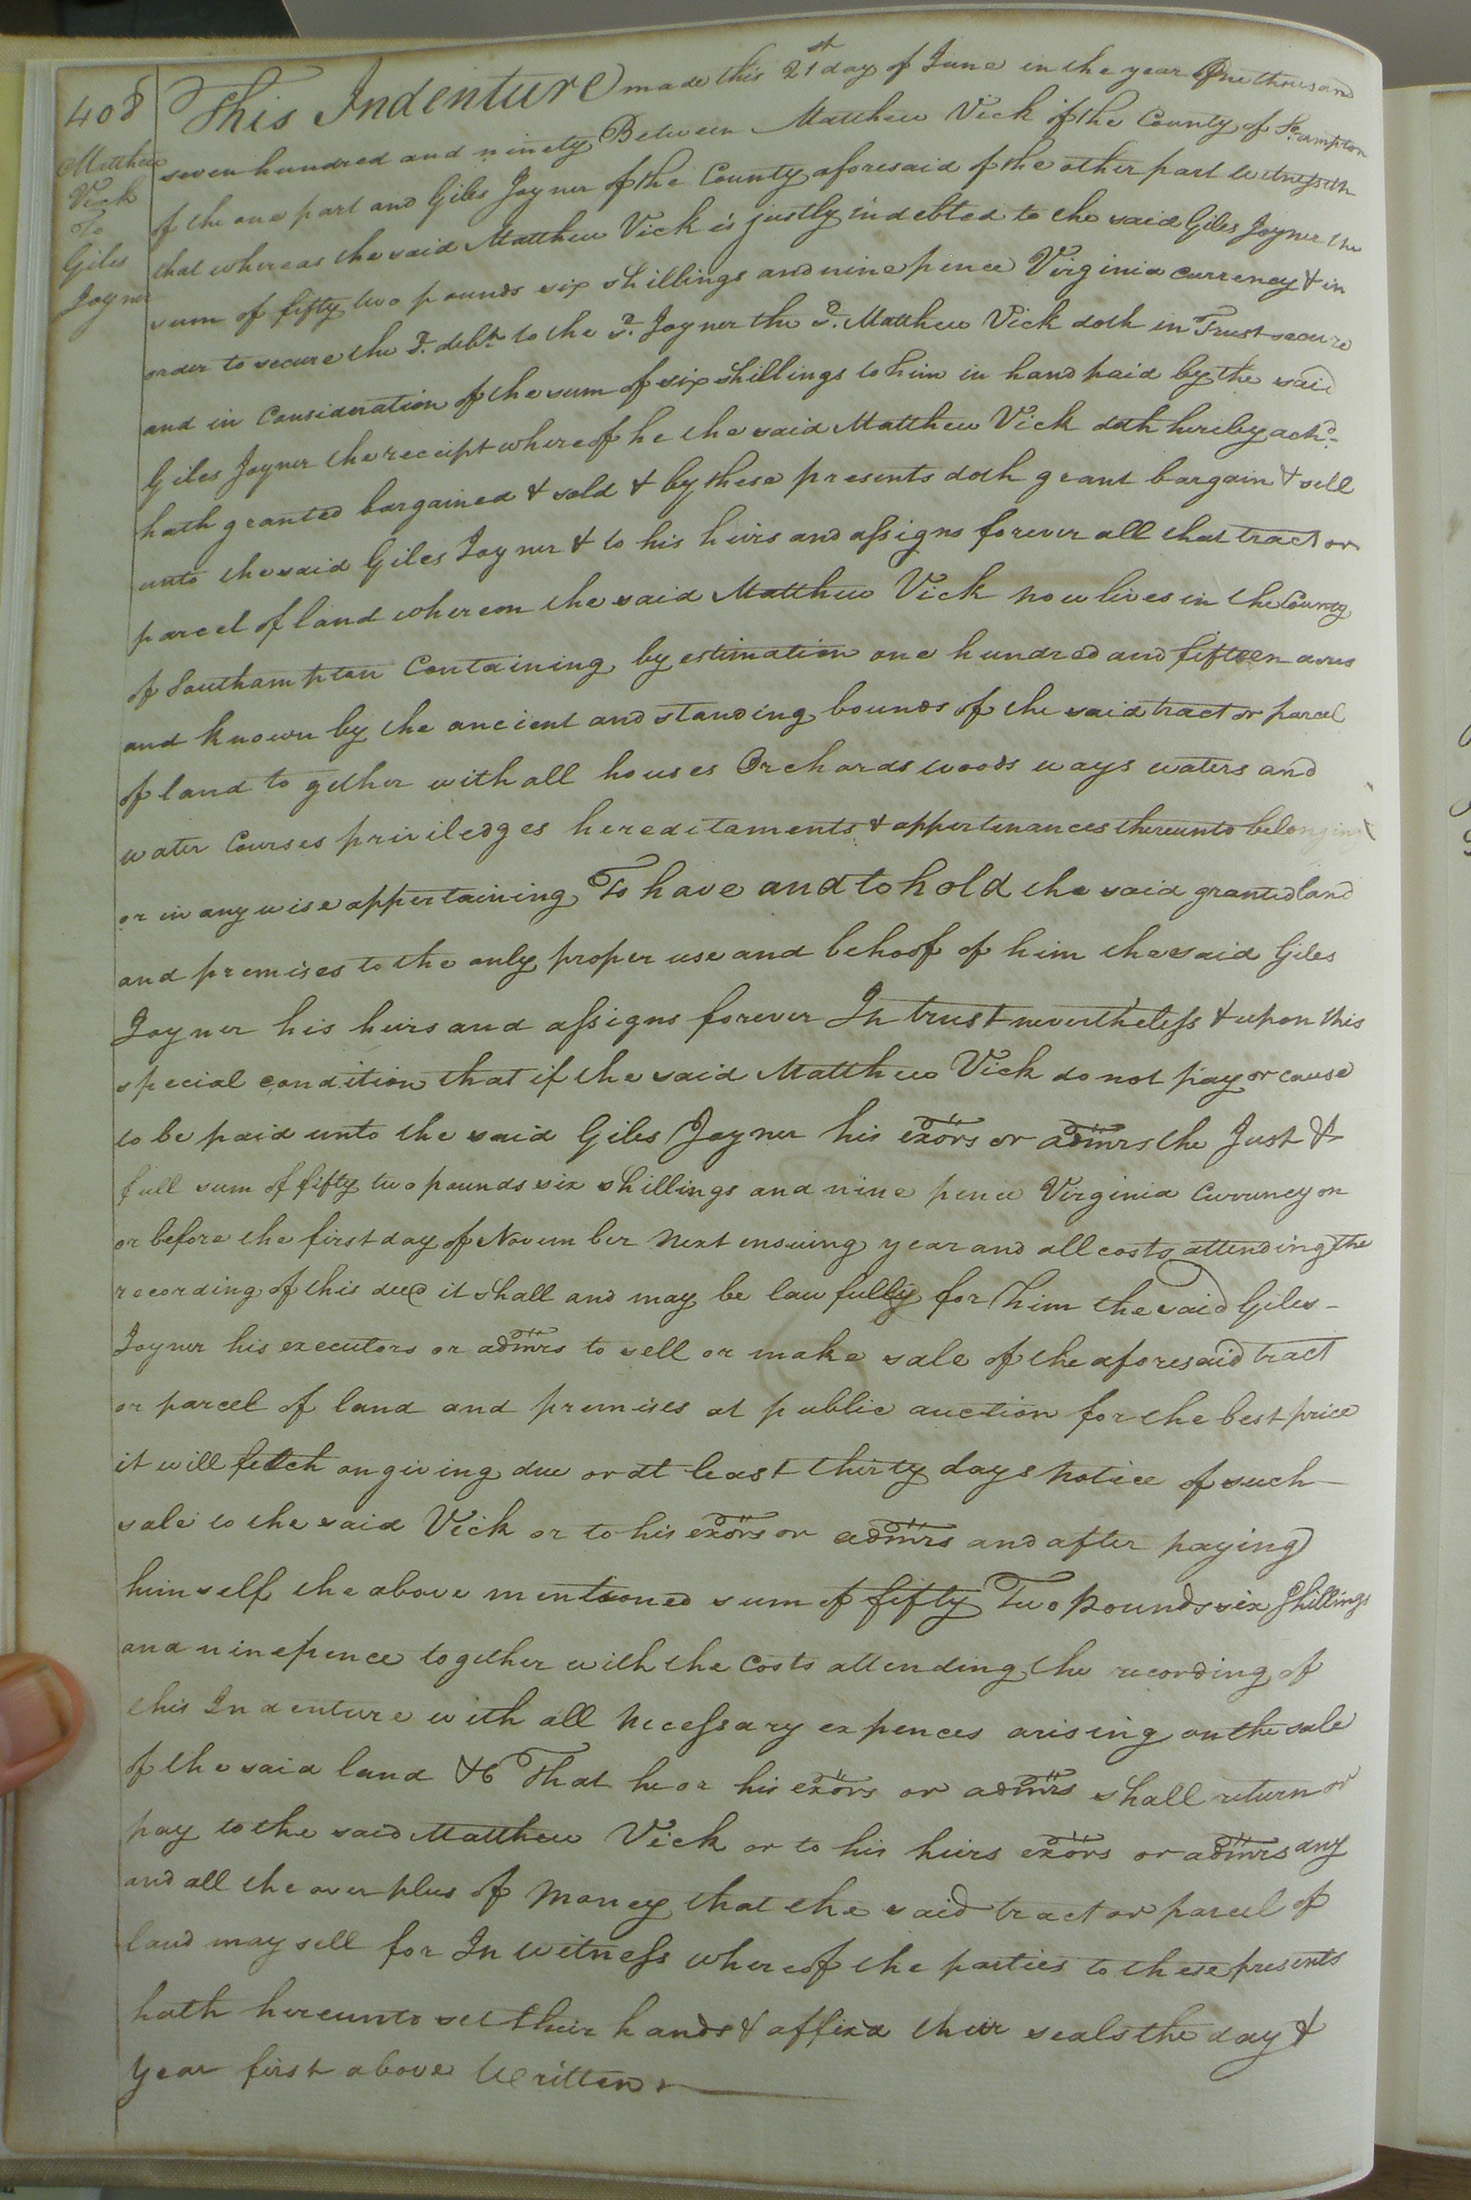 408
Matthew
Vick
To
Giles
Joyner
This Indenture made this 21st day of June in the year One thousand
seven hundred and ninety Between Matthew Vick of the County of So.ampton
of the one part and Giles Joyner of the County aforesaid of the other part witnesseth
that whereas the said Matthew Vick is justly indebted to the said Giles Joyner the
sum of fifty two pounds six shillings and nine pence Virginia currency & in
order to secure the sd. debt to the sd. Joyner the sd. Matthew Vick doth in Trust secure
and in Consideration of the sum of six shillings to him in hand paid by the said
Giles Joyner the receipt whereof he the said Matthew Vick doth hereby ackd.
hath granted bargained & sold & by these presents doth grant bargain & sell
unto the said Giles Joyner & to his heirs and assigns forever all that tract or
parcel of land whereon the said Matthew Vick now lives in the County
of Southampton Containing by estimation one hundred and fifteen acres
and known by the ancient and standing bounds of the said tract or parcel
of land to gether with all houses Orchards woods ways waters and
water Courses priviledges hereditaments & appertenances thereunto belonging
or in any wise appertaining To have and to hold the said granted land
and premises to the only proper use and behoof of him the said Giles
Joyner his heirs and assigns forever In trust nevertheless & upon this
special condition that if the said Matthew Vick do not pay or cause
to be paid unto the said Giles Joyner his exors or admrs the Just &
full sum of fifty two pounds six shillings and nine pence Virginia Curruncy on
or before the first day of November next ensuing year and all costs attending the
recording of this deed it shall and may be law fully for him the said Giles -
Joyner his executors or admrs to sell or make sale of the aforesaid tract
or parcel of land and premises at public auction for the best price
it will fetch on giving due or at least thirty days notice of such -
sale to the said Vick or to his exors or admrs and after paying
himself the above mentioned sum of fifty Two pounds six Shillings
and ninepence together with the Costs attending the recording of
this Indenture with all necessary expences arising on the sale
of the said land &C That he or his exors or admrs shall return or
pay to the said Matthew Vick or to his heirs exors or admrs any
and all the over plus of money that the said tract or parcel of
land may sell for In witness whereof the parties to these presents
hath hereunto set their hands & affixd their seals the day &
year first above Written